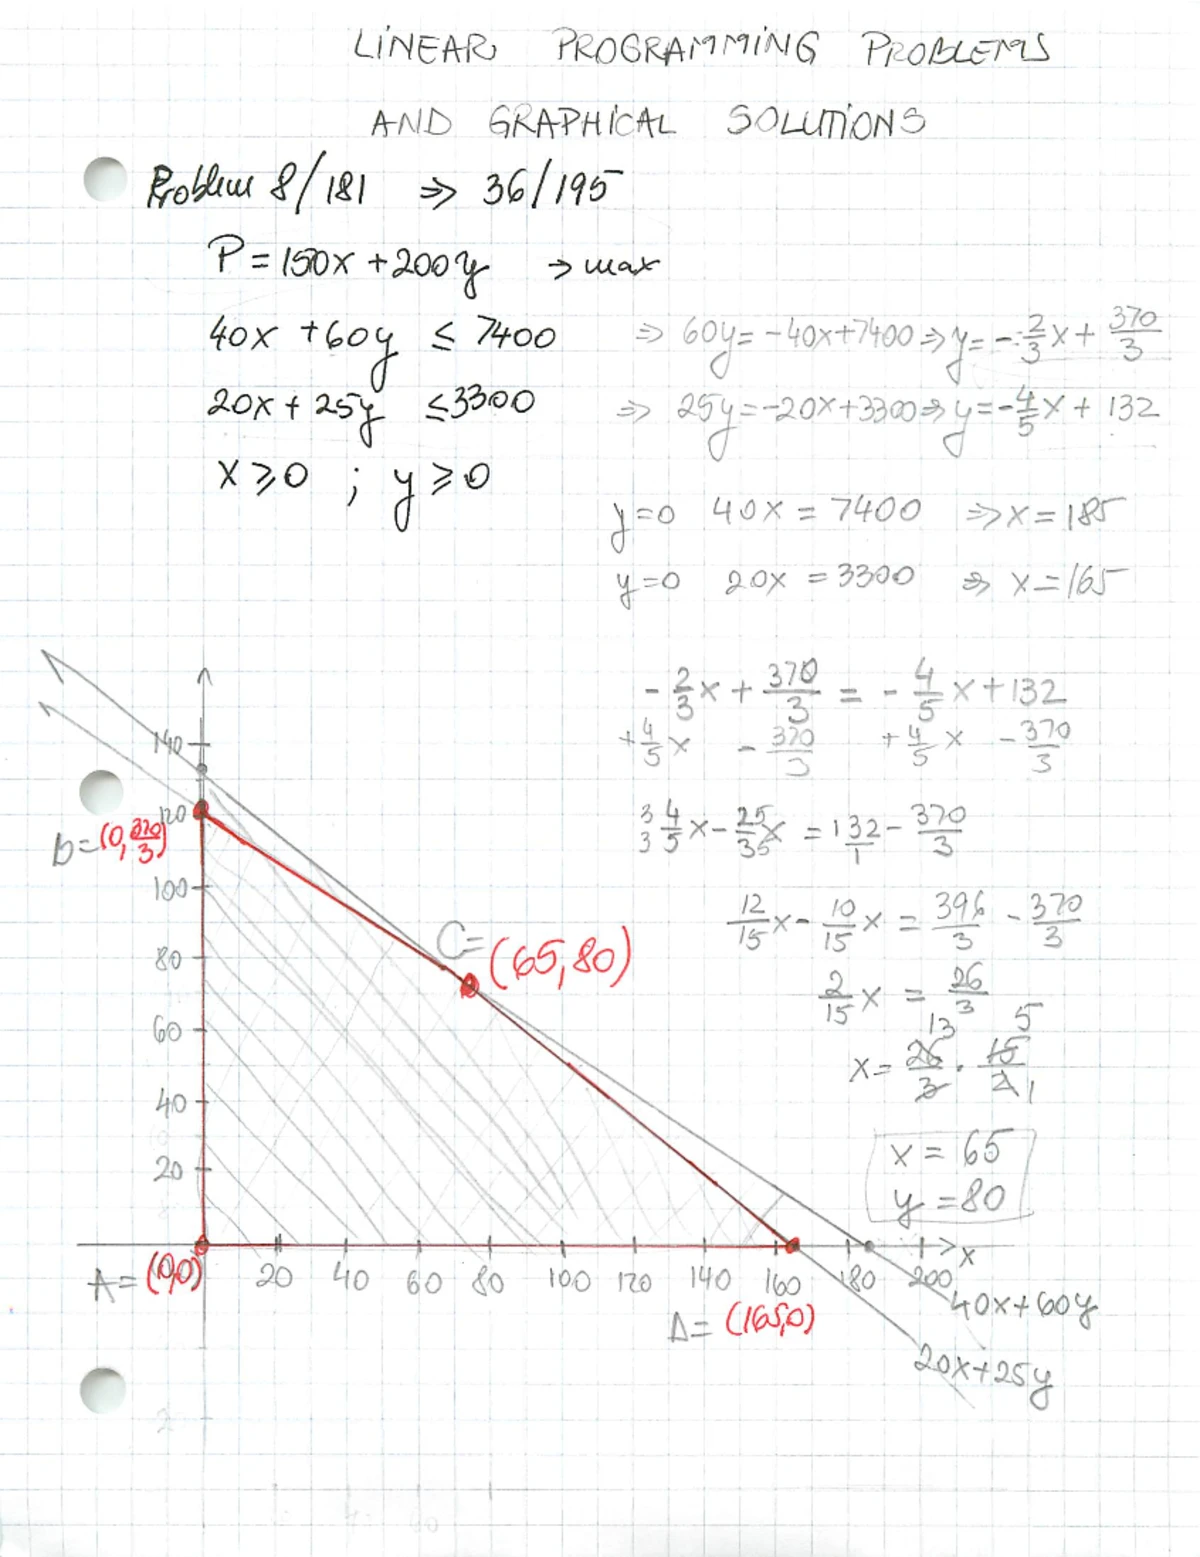 LINEAR PROGRAMMING PROBLEMS
AND GRAPHICAL SOLUTIONS
Problem 8/181 ⇒ 36/195
P = 150x + 200y → max
40x + 60y ≤ 7400 ⇒ 60y = -40x+7400 ⇒ y = -2/3x + 370/3
20x + 25y ≤ 3300 ⇒ 25y = -20x+3300 ⇒ y = -4/5x + 132
x ≥ 0 ; y ≥ 0
y=0 40x = 7400 ⇒ x = 185
y=0 20x = 3300 ⇒ x = 165
-2/3x + 370/3 = -4/5x + 132
+4/5x - 370/3 +4/5x - 370/3
3/3 4/5x - 2/3 5/5x = 132/1 - 370/3
12/15x - 10/15x = 396/3 - 370/3
2/15x = 26/3
13 5
x = 26/3 · 15/2 1
x = 65
y = 80
140
120
B = (0, 370/3)
100
80
60
40
20
C = (65,80)
A = (0,0)
20 40 60 80 100 120 140 160 180 200 x
D = (165,0)
40x+60y
20x+25y